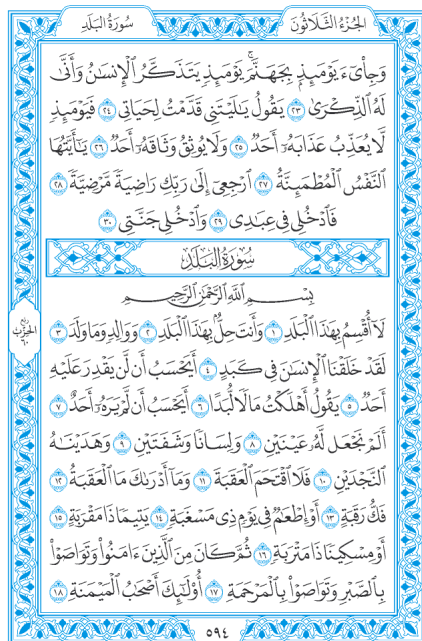 سُورَةُ البَلَدِ الجُزْءُ الثَّلَاثُونَ
وَجِاْىٓءَ يَوْمَئِذٍۭ بِجَهَنَّمَۚ يَوْمَئِذٍ يَتَذَكَّرُ ٱلْإِنسَٰنُ وَأَنَّىٰ
لَهُ ٱلذِّكْرَىٰ ٢٣ يَقُولُ يَٰلَيْتَنِى قَدَّمْتُ لِحَيَاتِى ٢٤ فَيَوْمَئِذٍ
لَّا يُعَذِّبُ عَذَابَهُۥٓ أَحَدٌ ٢٥ وَلَا يُوثِقُ وَثَاقَهُۥٓ أَحَدٌ ٢٦ يَٰٓأَيَّتُهَا
ٱلنَّفْسُ ٱلْمُطْمَئِنَّةُ ٢٧ ٱرْجِعِىٓ إِلَىٰ رَبِّكِ رَاضِيَةً مَّرْضِيَّةً ٢٨
فَٱدْخُلِى فِى عِبَٰدِى ٢٩ وَٱدْخُلِى جَنَّتِى ٣٠
سُورَةُ البَلَدِ
بِسْمِ ٱللَّهِ ٱلرَّحْمَٰنِ ٱلرَّحِيمِ
لَآ أُقْسِمُ بِهَٰذَا ٱلْبَلَدِ ١ وَأَنتَ حِلٌّۢ بِهَٰذَا ٱلْبَلَدِ ٢ وَوَالِدٍ وَمَا وَلَدَ ٣
لَقَدْ خَلَقْنَا ٱلْإِنسَٰنَ فِى كَبَدٍ ٤ أَيَحْسَبُ أَن لَّن يَقْدِرَ عَلَيْهِ
أَحَدٌ ٥ يَقُولُ أَهْلَكْتُ مَالًا لُّبَدًا ٦ أَيَحْسَبُ أَن لَّمْ يَرَهُۥٓ أَحَدٌ ٧
أَلَمْ نَجْعَل لَّهُۥ عَيْنَيْنِ ٨ وَلِسَانًا وَشَفَتَيْنِ ٩ وَهَدَيْنَٰهُ
ٱلنَّجْدَيْنِ ١٠ فَلَا ٱقْتَحَمَ ٱلْعَقَبَةَ ١١ وَمَآ أَدْرَىٰكَ مَا ٱلْعَقَبَةُ ١٢
فَكُّ رَقَبَةٍ ١٣ أَوْ إِطْعَٰمٌ فِى يَوْمٍ ذِى مَسْغَبَةٍ ١٤ يَتِيمًا ذَا مَقْرَبَةٍ ١٥
أَوْ مِسْكِينًا ذَا مَتْرَبَةٍ ١٦ ثُمَّ كَانَ مِنَ ٱلَّذِينَ ءَامَنُوا۟ وَتَوَاصَوْا۟
بِٱلصَّبْرِ وَتَوَاصَوْا۟ بِٱلْمَرْحَمَةِ ١٧ أُو۟لَٰٓئِكَ أَصْحَٰبُ ٱلْمَيْمَنَةِ ١٨
ربع
الحزب
٦٠
٥٩٤